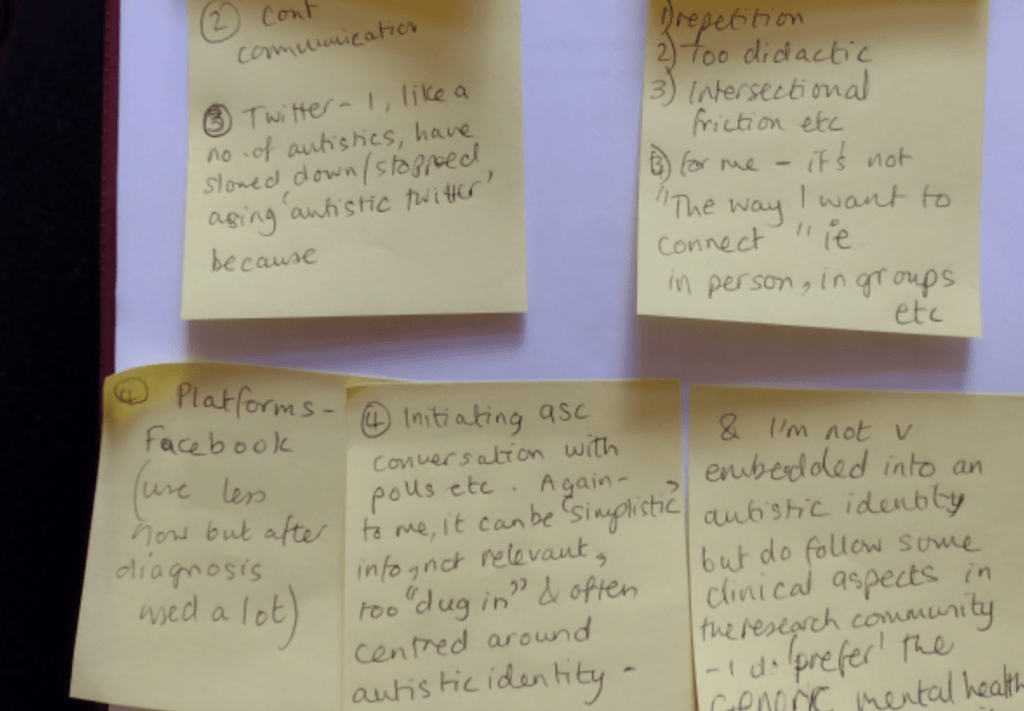 ② Cont
communication
③ Twitter - I, like a
no. of autistics, have
slowed down/stopped
using 'autistic twitter'
because
1) repetition
2) Too didactic
3) Intersectional
friction etc
③ for me - it's not
"The way I want to
connect" ie
in person, in groups
etc
④ Platforms -
Facebook
(use less
now but after
diagnosis
used a lot)
④ Initiating asc
conversation with
polls etc. Again -
to me, it can be 'simplistic'
info, not relevant,
too "dug in" & often
centred around
autistic identity -
& I'm not v
embedded into an
autistic identity
but do follow some
clinical aspects in
the research community
- I do 'prefer' the
generic mental health